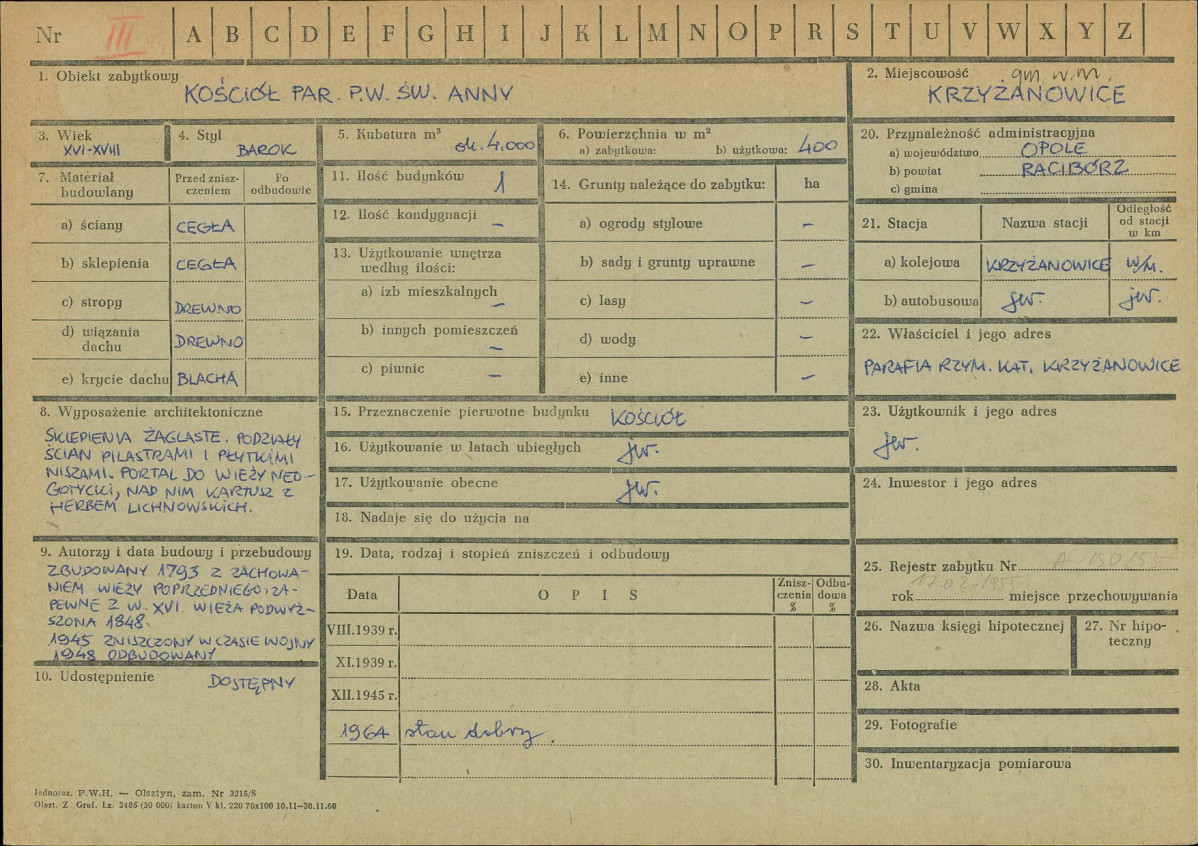 Nr III A B C D E F G H I J K L M N O P R S T U V W X Y Z
1. Obiekt zabytkowy
KOŚCIÓŁ PAR. P.W. ŚW. ANNY
2. Miejscowość gm w.m.
KRZYŻANOWICE
3. Wiek
XVI-XVIII
4. Styl
BAROK
5. Kubatura m³
ok. 4.000
6. Powierzchnia w m²
a) zabytkowa: b) użytkowa: 400
7. Materiał
budowlany
Przed znisz-
czeniem
Po
odbudowie
a) ściany CEGŁA
b) sklepienia CEGŁA
c) stropy DREWNO
d) wiązania
dachu DREWNO
e) krycie dachu BLACHA
8. Wyposażenie architektoniczne
SKLEPIENIA ŻAGLASTE. PODZIAŁY
ŚCIAN PILASTRAMI I PŁYTKIMI
NISZAMI. PORTAL DO WIEŻY NEO-
GOTYCKI, NAD NIM KARTUSZ Z
HERBEM LICHNOWSKICH.
9. Autorzy i data budowy i przebudowy
ZBUDOWANY 1793 Z ZACHOWA-
NIEM WIEŻY POPRZEDNIEGO, ZA-
PEWNE Z W. XVI. WIEŻA PODWYŻ-
SZONA 1848.
1945 ZNISZCZONY W CZASIE WOJNY
1948 ODBUDOWANY
10. Udostępnienie
DOSTĘPNY
11. Ilość budynków 1
12. Ilość kondygnacji –
13. Użytkowanie wnętrza
według ilości:
a) izb mieszkalnych –
b) innych pomieszczeń –
c) piwnic –
14. Grunty należące do zabytku: ha
a) ogrody stylowe –
b) sady i grunty uprawne –
c) lasy –
d) wody –
e) inne –
15. Przeznaczenie pierwotne budynku KOŚCIÓŁ
16. Użytkowanie w latach ubiegłych jw.
17. Użytkowanie obecne jw.
18. Nadaje się do użycia na
19. Data, rodzaj i stopień zniszczeń i odbudowy
Data O P I S
Znisz-
czenia
%
Odbu-
dowa
%
VIII.1939 r.
XI.1939 r.
XII.1945 r.
1964 stan dobry.
20. Przynależność administracyjna
a) województwo OPOLE
b) powiat RACIBÓRZ
c) gmina
21. Stacja Nazwa stacji
Odległość
od stacji
w km
a) kolejowa KRZYŻANOWICE w/m.
b) autobusowa jw. jw.
22. Właściciel i jego adres
PARAFIA RZYM. KAT. KRZYŻANOWICE
23. Użytkownik i jego adres
jw.
24. Inwestor i jego adres
25. Rejestr zabytku Nr A-150/55
17.02.1955
rok miejsce przechowywania
26. Nazwa księgi hipotecznej
27. Nr hipo-
teczny
28. Akta
29. Fotografie
30. Inwentaryzacja pomiarowa
Jednoraz. P.W.H. — Olsztyn, zam. Nr 3215/S
Olszt. Z. Graf. Lz. 2485 (30 000) karton V kl. 220 70x100 10.11—30.11.60